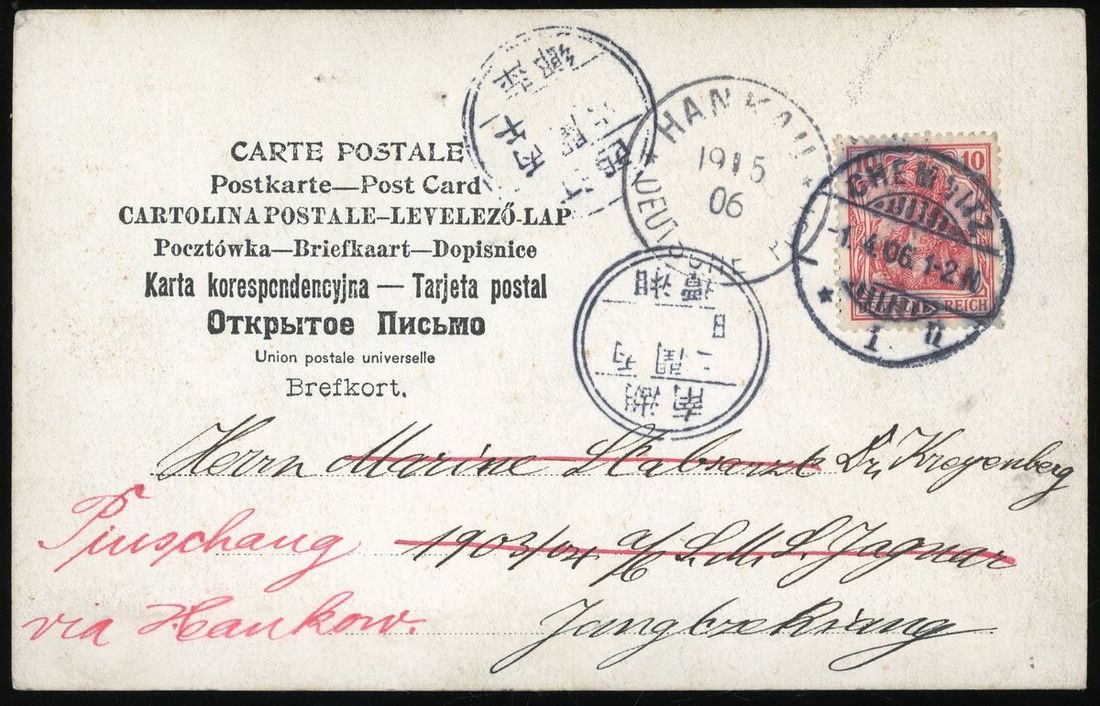 CARTE POSTALE
Postkarte—Post Card
CARTOLINA POSTALE—LEVELEZŐ-LAP
Pocztówka—Briefkaart—Dopisnice
Karta korespondencyjna — Tarjeta postal
Открытое Письмо
Union postale universelle
Brefkort.
HANKAU
1915
06
DEUTSCHE
10 10
REICH
CHEMNITZ
-1.4.06. 1-2 N
1
Herrn Marine Stabsarzt Dr. Kreyenberg
Pinschang
1903/04 S.M.S. Jaguar
via Hankow.
Jangtzekiang
湖南